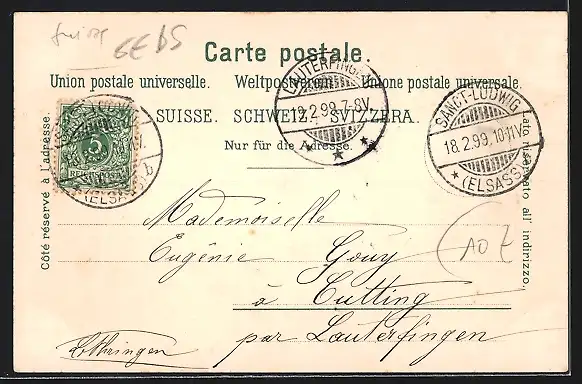 Suisse GEBS
Carte postale.
Union postale universelle. Weltpostverein. Unione postale universale.
SUISSE. SCHWEIZ. SVIZZERA.
Nur für die Adresse.
Côté réservé à l'adresse.
Lato riservato all' indirizzo.
5
LAUTERFINGEN
19.2.99.7-8V.
SANCT-LUDWIG
18.2.99.10-11V.
(ELSASS)
(ELSASS)
Mademoiselle
Eugénie Gouy
à Cutting
par Lauterfingen
Lothringen
A0Z